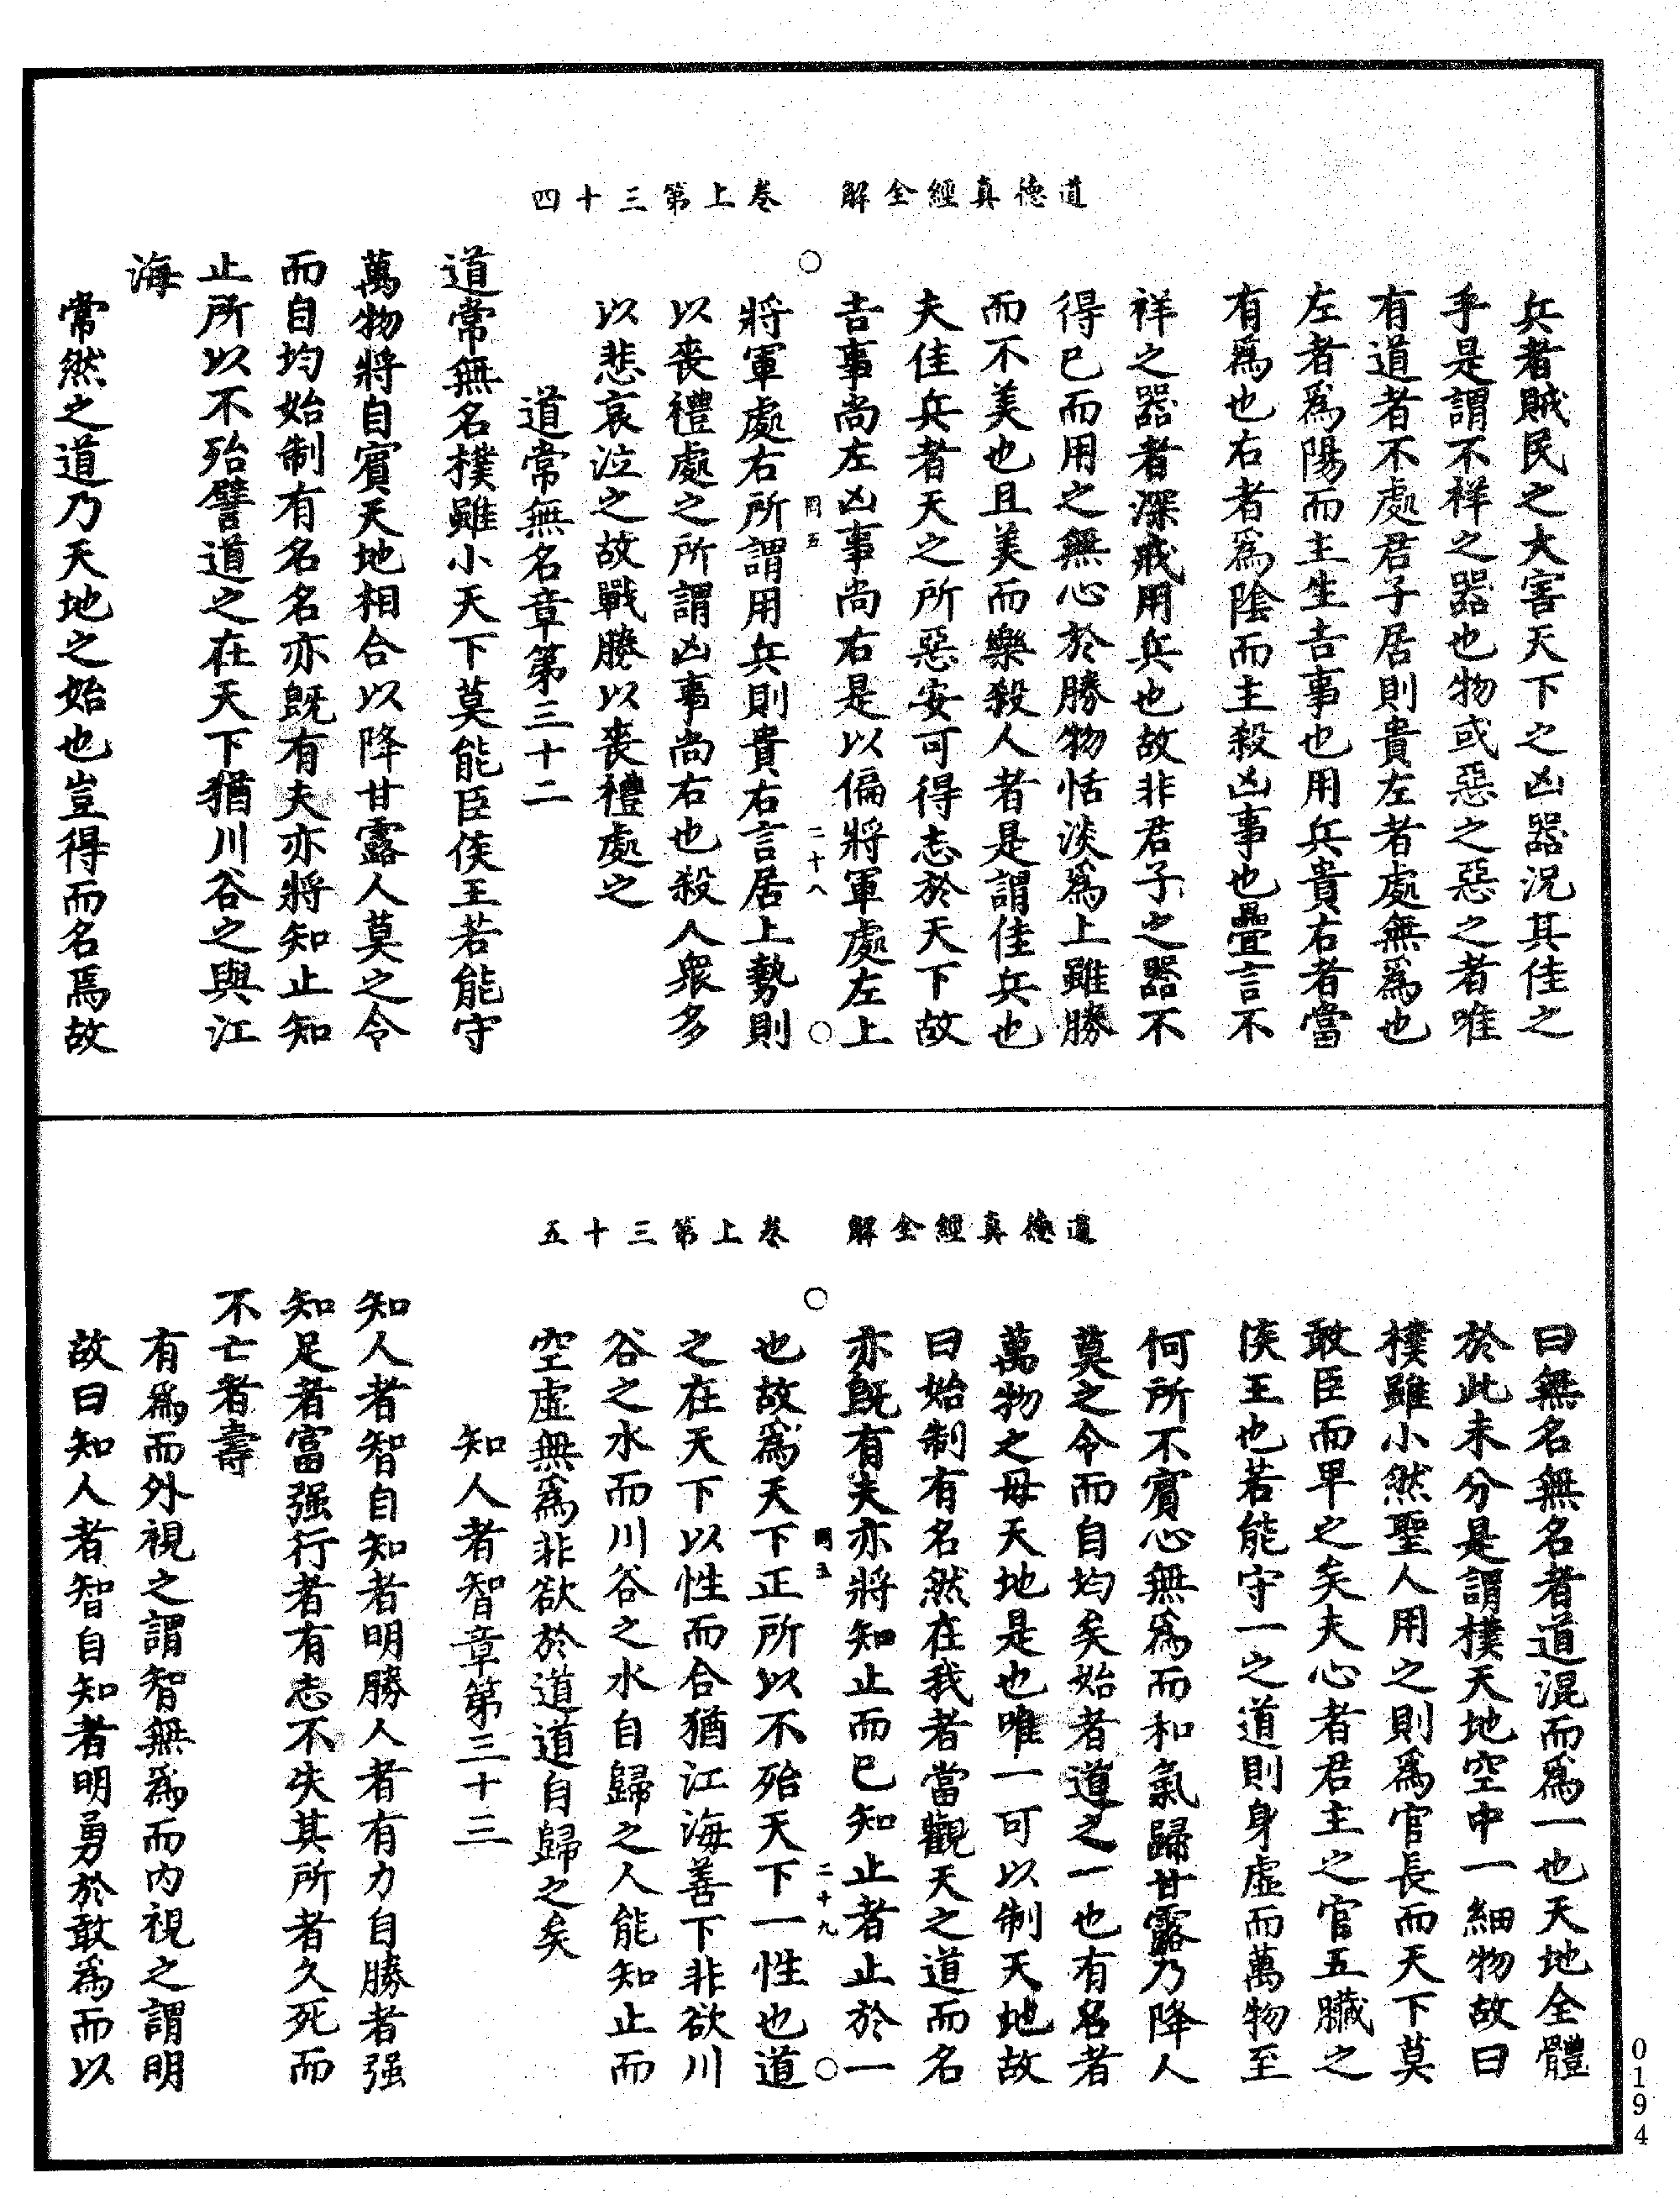 道德真經全解　卷上第三十四
兵者賊民之大害天下之凶器況其佳之
乎是謂不祥之器也物或惡之惡之者唯
有道者不處君子居則貴左者處無爲也
左者爲陽而主生吉事也用兵貴右者當
有爲也右者爲陰而主殺凶事也疊言不
祥之器者深戒用兵也故非君子之器不
得已而用之無心於勝物恬淡爲上雖勝
而不美也且美而樂殺人者是謂佳兵也
夫佳兵者天之所惡安可得志於天下故
吉事尚左凶事尚右是以偏將軍處左上
○　罔五　二十八　○
將軍處右所謂用兵則貴右言居上勢則
以喪禮處之所謂凶事尚右也殺人衆多
以悲哀泣之故戰勝以喪禮處之
道常無名章第三十二
道常無名樸雖小天下莫能臣侯王若能守
萬物將自賓天地相合以降甘露人莫之令
而自均始制有名名亦既有夫亦將知止知
止所以不殆譬道之在天下猶川谷之與江
海
常然之道乃天地之始也豈得而名焉故
道德真經全解　卷上第三十五
曰無名無名者道混而爲一也天地全體
於此未分是謂樸天地空中一細物故曰
樸雖小然聖人用之則爲官長而天下莫
敢臣而卑之矣夫心者君主之官五臟之
侯王也若能守一之道則身虛而萬物至
何所不賓心無爲而和氣歸甘露乃降人
莫之令而自均矣始者道之一也有名者
萬物之母天地是也唯一可以制天地故
曰始制有名然在我者當觀天之道而名
亦既有夫亦將知止而已知止者止於一
○　罔五　二十九　○
也故爲天下正所以不殆天下一性也道
之在天下以性而合猶江海善下非欲川
谷之水而川谷之水自歸之人能知止而
空虛無爲非欲於道道自歸之矣
知人者智章第三十三
知人者智自知者明勝人者有力自勝者强
知足者富强行者有志不失其所者久死而
不亡者壽
有爲而外視之謂智無爲而內視之謂明
故曰知人者智自知者明勇於敢爲而以
0194